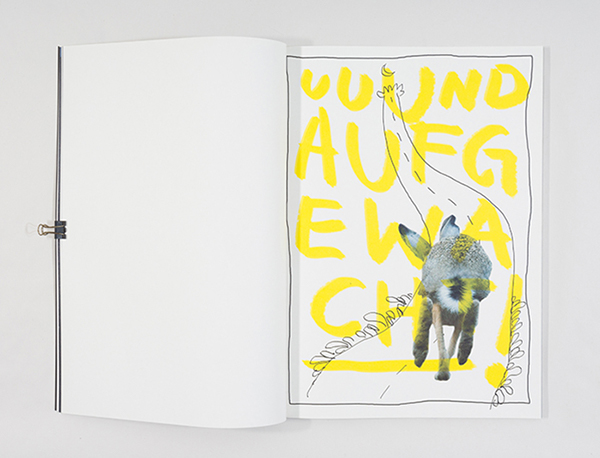 UUUND
AUFG
EWA
CHT!